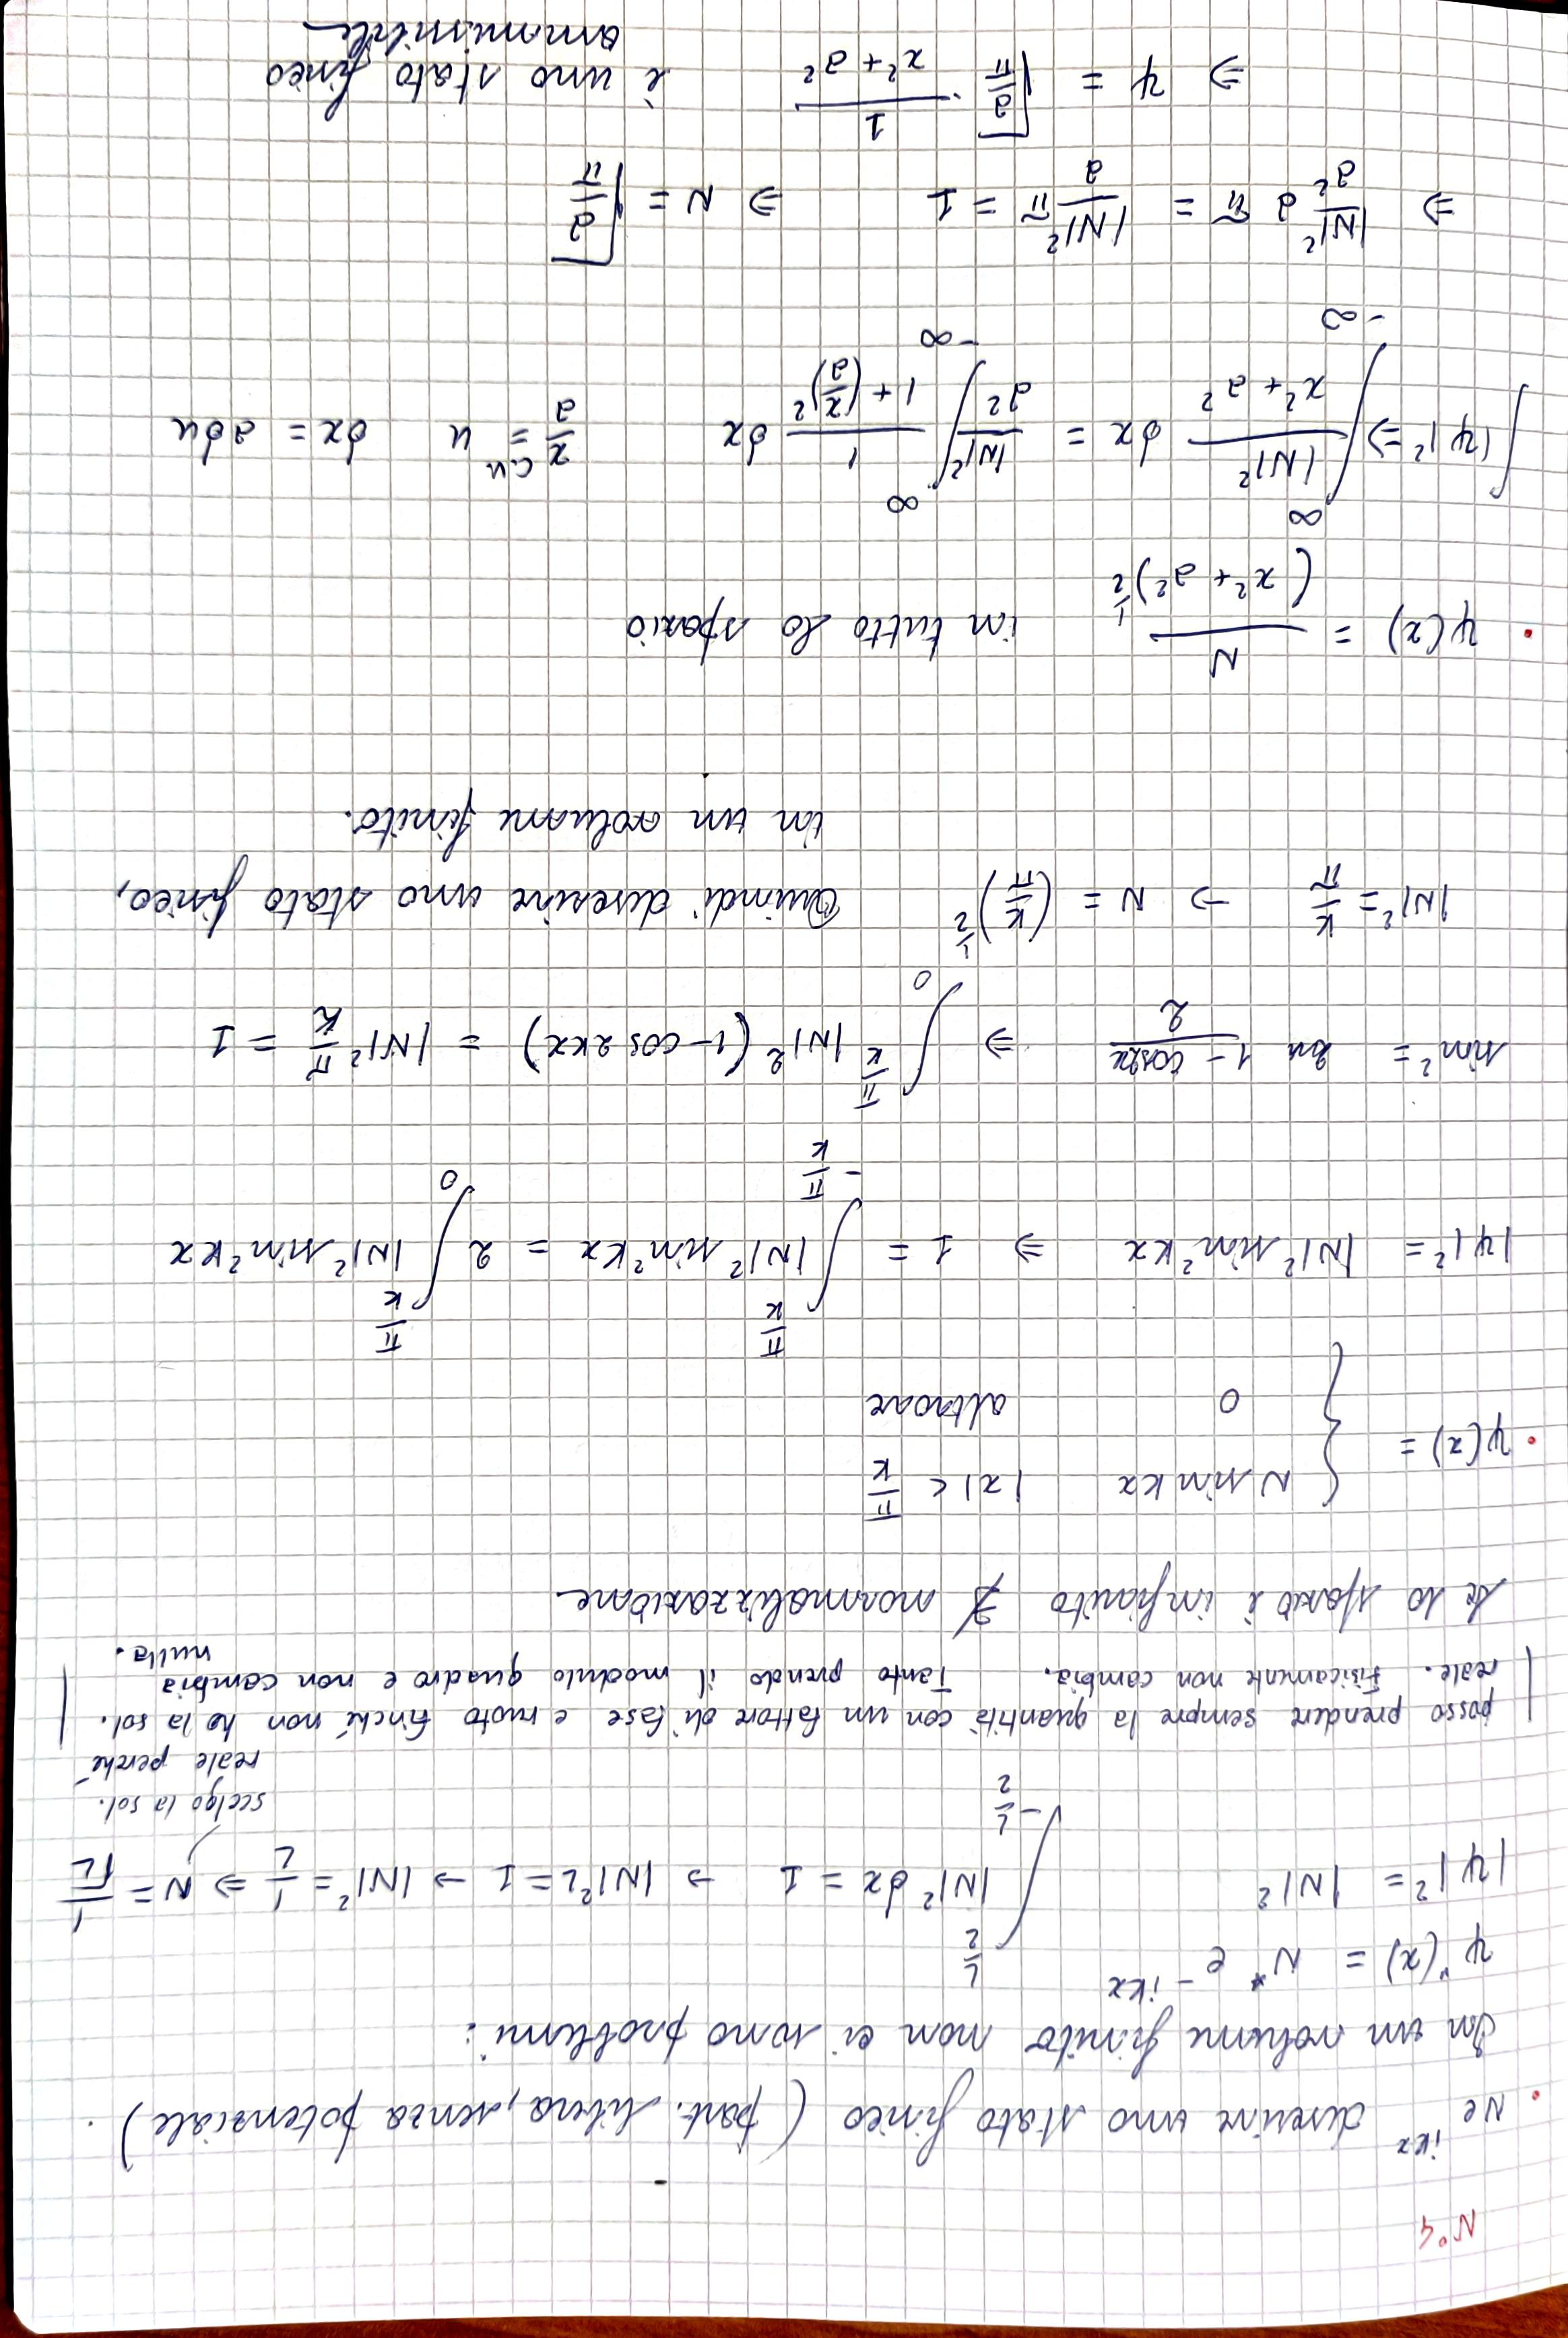 N°4
• Ne^{ikx} descrive uno stato fisico (part. libera, senza potenziale).
In un volume finito non ci sono problemi:
ψ*(x) = N* e^{-ikx}
|ψ|² = |N|² ∫_{-L/2}^{L/2} |N|² dx = 1 → |N|² L = 1 → |N|² = 1/L ⇒ N = 1/√L
scelgo la sol.
reale perché
posso prendere sempre la quantità con un fattore di fase e ruoto finché non ho la sol.
reale. Fisicamente non cambia. Tanto prendo il modulo quadro e non cambia
nulla.
Se lo spazio è infinito ∄ normalizzazione
• ψ(x) = { N sin kx |x| < π/k
0 altrove
|ψ|² = |N|² sin² kx ⇒ 1 = ∫_{-π/k}^{π/k} |N|² sin² kx = 2 ∫_0^{π/k} |N|² sin² kx
sin² = 1 - cos2x / 2 ⇒ ∫_0^{π/k} |N|² (1 - cos 2kx) = |N|² π/k = 1
|N|² = k/π → N = (k/π)^{1/2} Quindi descrive uno stato fisico,
in un volume finito.
• ψ(x) = N / (x² + a²)^{1/2} in tutto lo spazio
∫|ψ|² ⇒ ∫_{-∞}^{∞} |N|² / (x² + a²) dx = |N|²/a² ∫_{-∞}^{∞} 1 / (1 + (x/a)²) dx x/a = u dx = a du
⇒ |N|²/a² a π = |N|²/a π = 1 ⇒ N = √(a/π)
⇒ ψ = √(a/π) · 1 / (x² + a²) è uno stato fisico
ammissibile